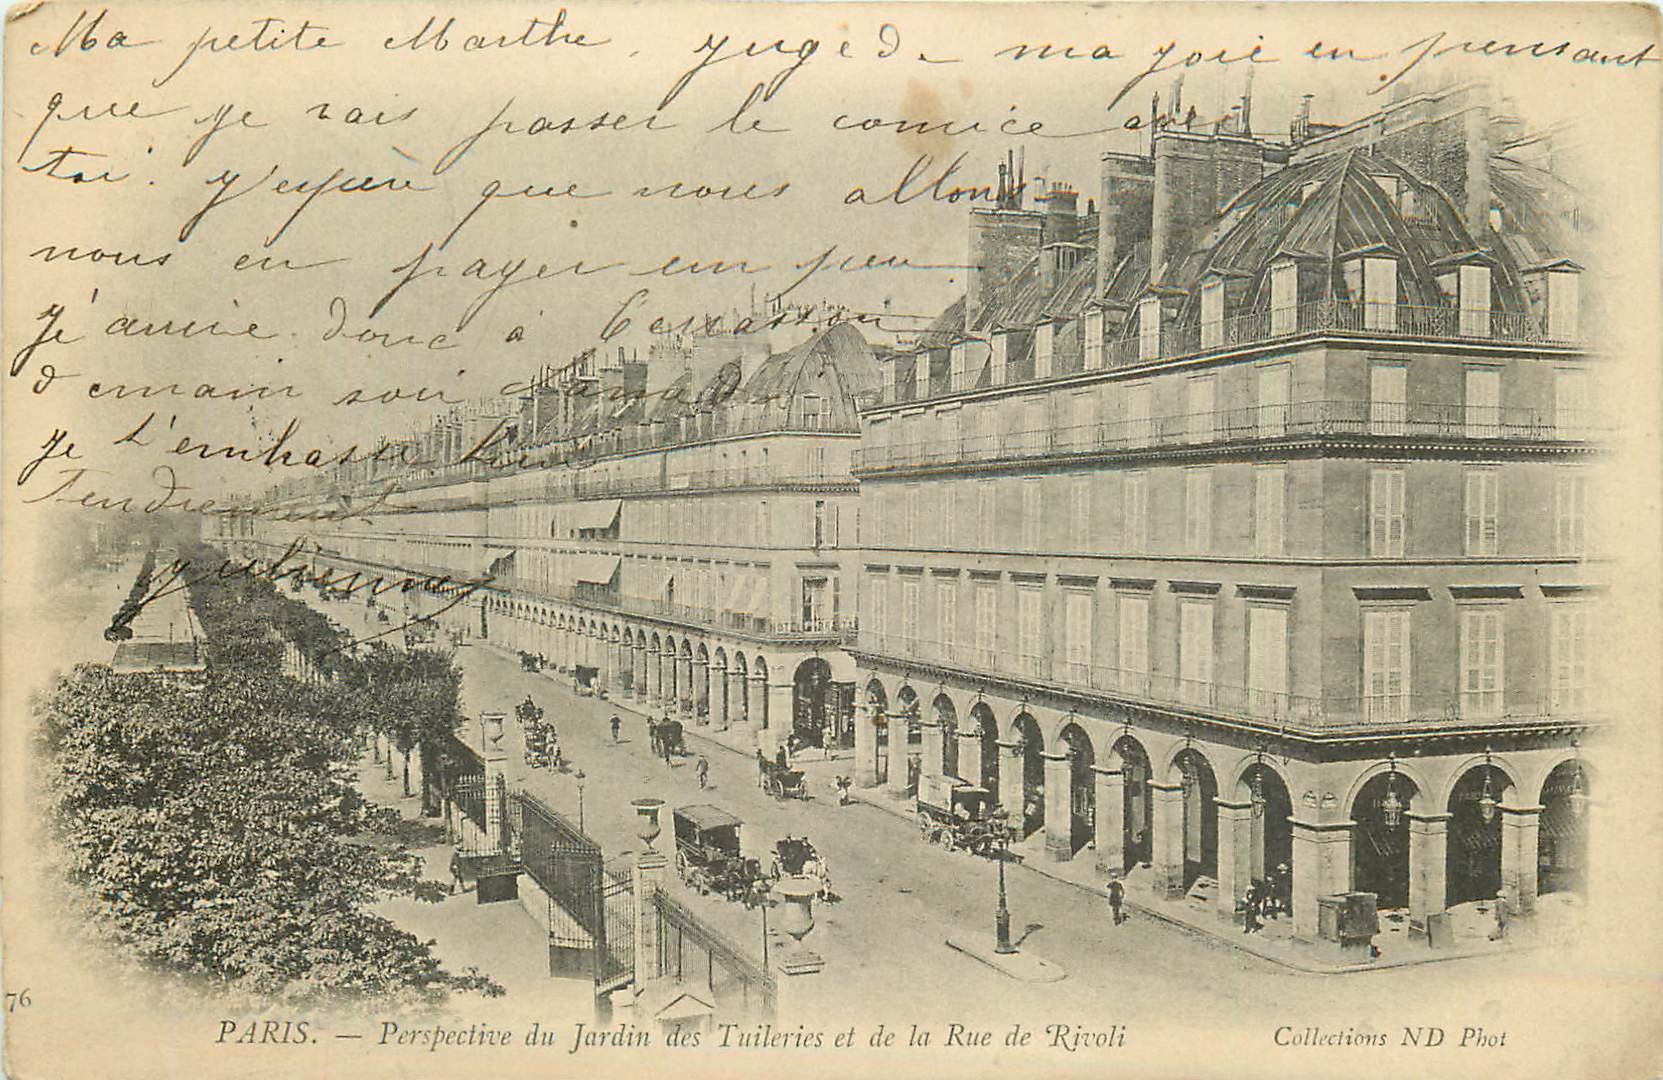 Ma petite Marthe, juge de ma joie en pensant
que je vais passer le comice avec
toi. j'espère que nous allons
nous en payer un peu
j'arrive donc à Terrasson
demain soir samedi
je t'embrasse bien
Tendrement
Julienne
HOTEL
76
PARIS. — Perspective du Jardin des Tuileries et de la Rue de Rivoli
Collections ND Phot